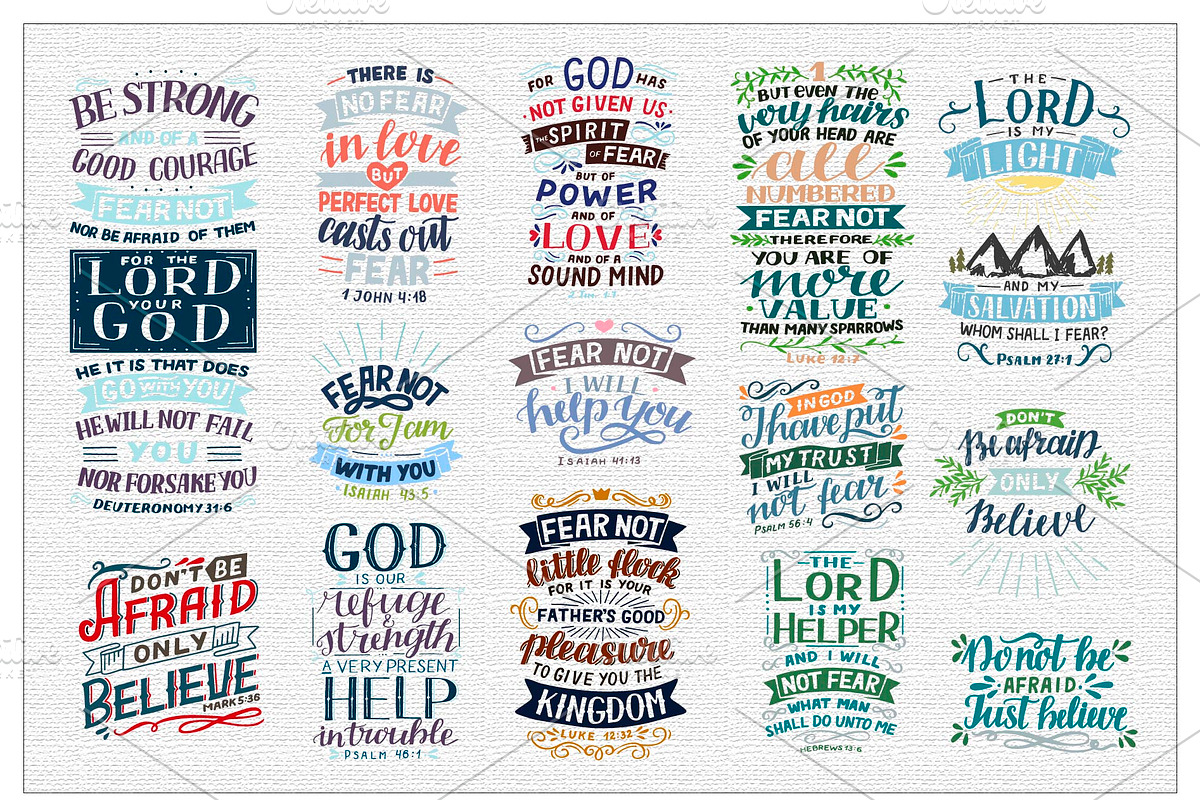 BE STRONG
AND OF A
GOOD COURAGE
FEAR NOT
NOR BE AFRAID OF THEM
FOR THE
LORD
YOUR
GOD
HE IT IS THAT DOES
GO WITH YOU
HE WILL NOT FAIL
YOU
NOR FORSAKE YOU
DEUTERONOMY 31:6
DON'T BE
AFRAID
ONLY
BELIEVE
MARK 5:36
THERE IS
NO FEAR
in love
BUT
PERFECT LOVE
casts out
FEAR
1 JOHN 4:18
FEAR NOT
For I am
WITH YOU
ISAIAH 43:5
GOD
IS OUR
refuge &
strength
A VERY PRESENT
HELP
in trouble
PSALM 46:1
FOR GOD HAS
NOT GIVEN US
THE SPIRIT
OF FEAR
BUT OF
POWER
AND OF
LOVE
AND OF A
SOUND MIND
2 Tim. 1:7
FEAR NOT
I WILL
help you
ISAIAH 41:13
FEAR NOT
little flock
FOR IT IS YOUR
FATHER'S GOOD
pleasure
TO GIVE YOU THE
KINGDOM
LUKE 12:32
1
BUT EVEN THE
very hairs
OF YOUR HEAD ARE
all
NUMBERED
FEAR NOT
THEREFORE
YOU ARE OF
more
VALUE
THAN MANY SPARROWS
LUKE 12:7
IN GOD
I have put
MY TRUST
I WILL
not fear
PSALM 56:4
THE
LORD
IS MY
HELPER
AND I WILL
NOT FEAR
WHAT MAN
SHALL DO UNTO ME
HEBREWS 13:6
THE
LORD
IS MY
LIGHT
AND MY
SALVATION
WHOM SHALL I FEAR?
PSALM 27:1
DON'T
Be afraid
ONLY
Believe
Do not be
AFRAID.
Just believe